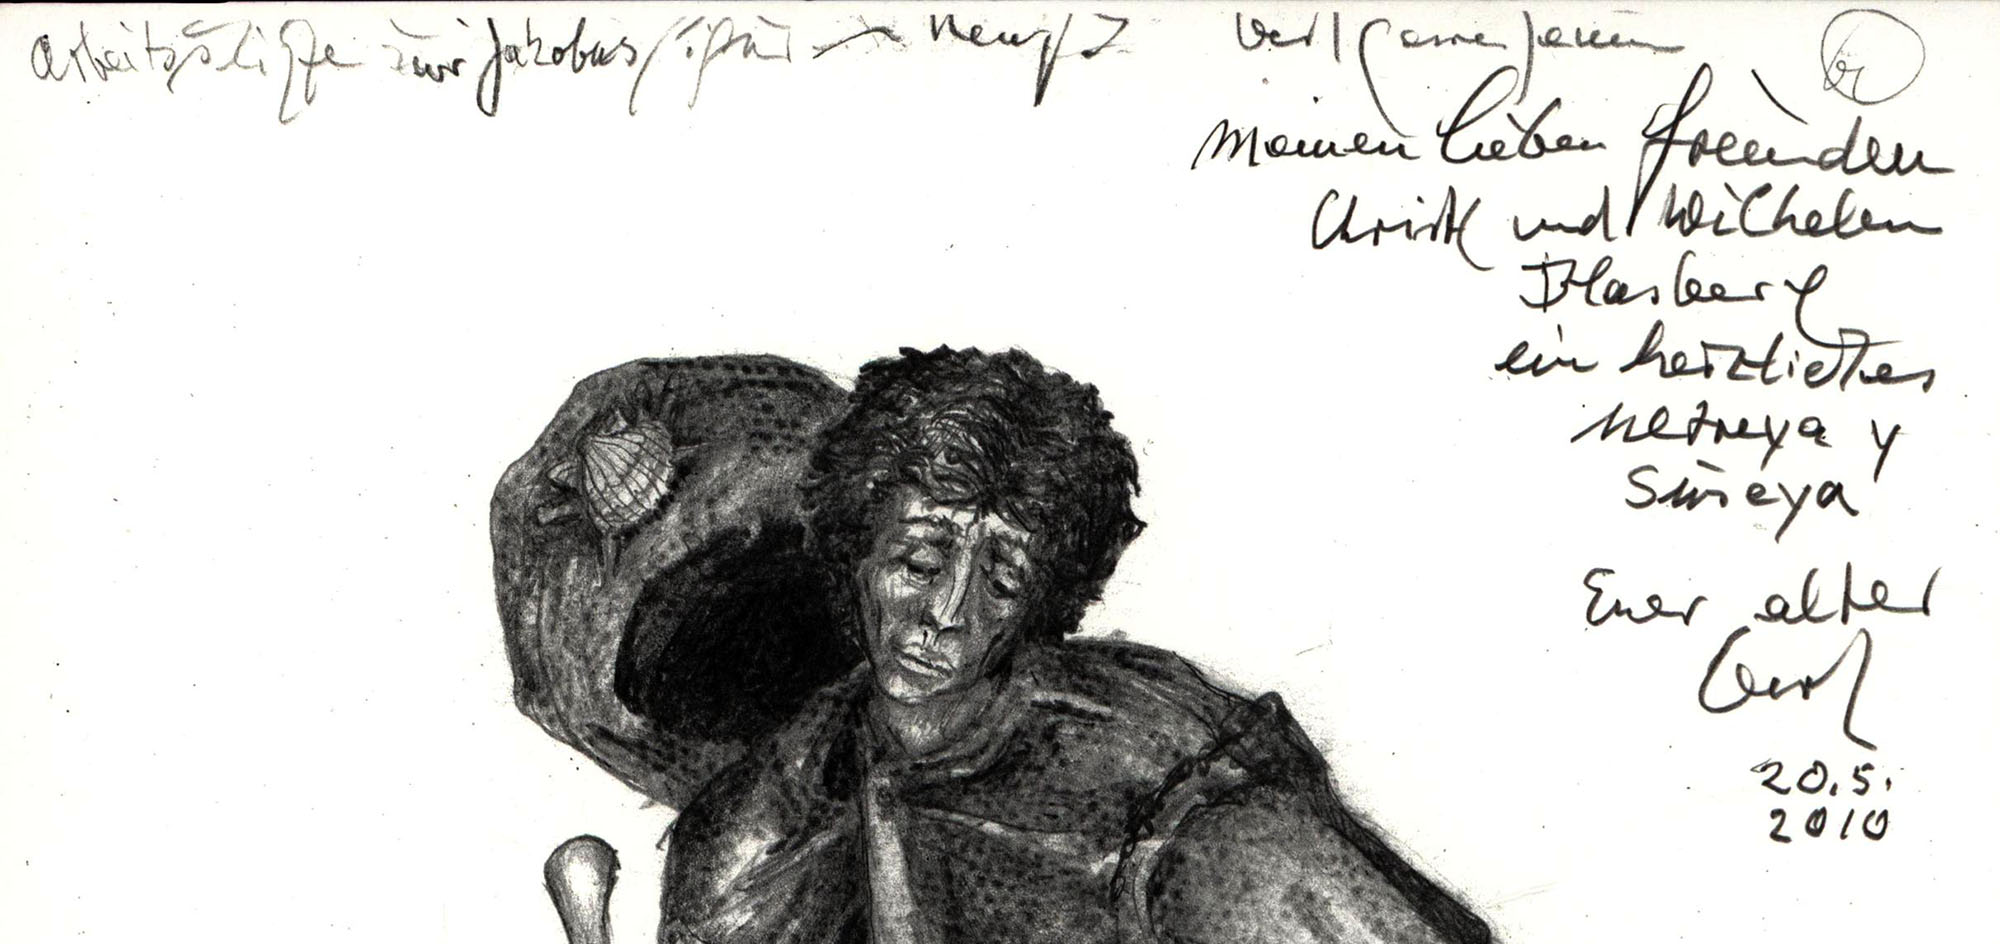 Arbeitsskizze zur Jakobus
Meinen lieben Freunden
Christl und Wilhelm
Blasberg
ein herzliches
Ultreya y
Suseya
Euer alter
20.5.
2010